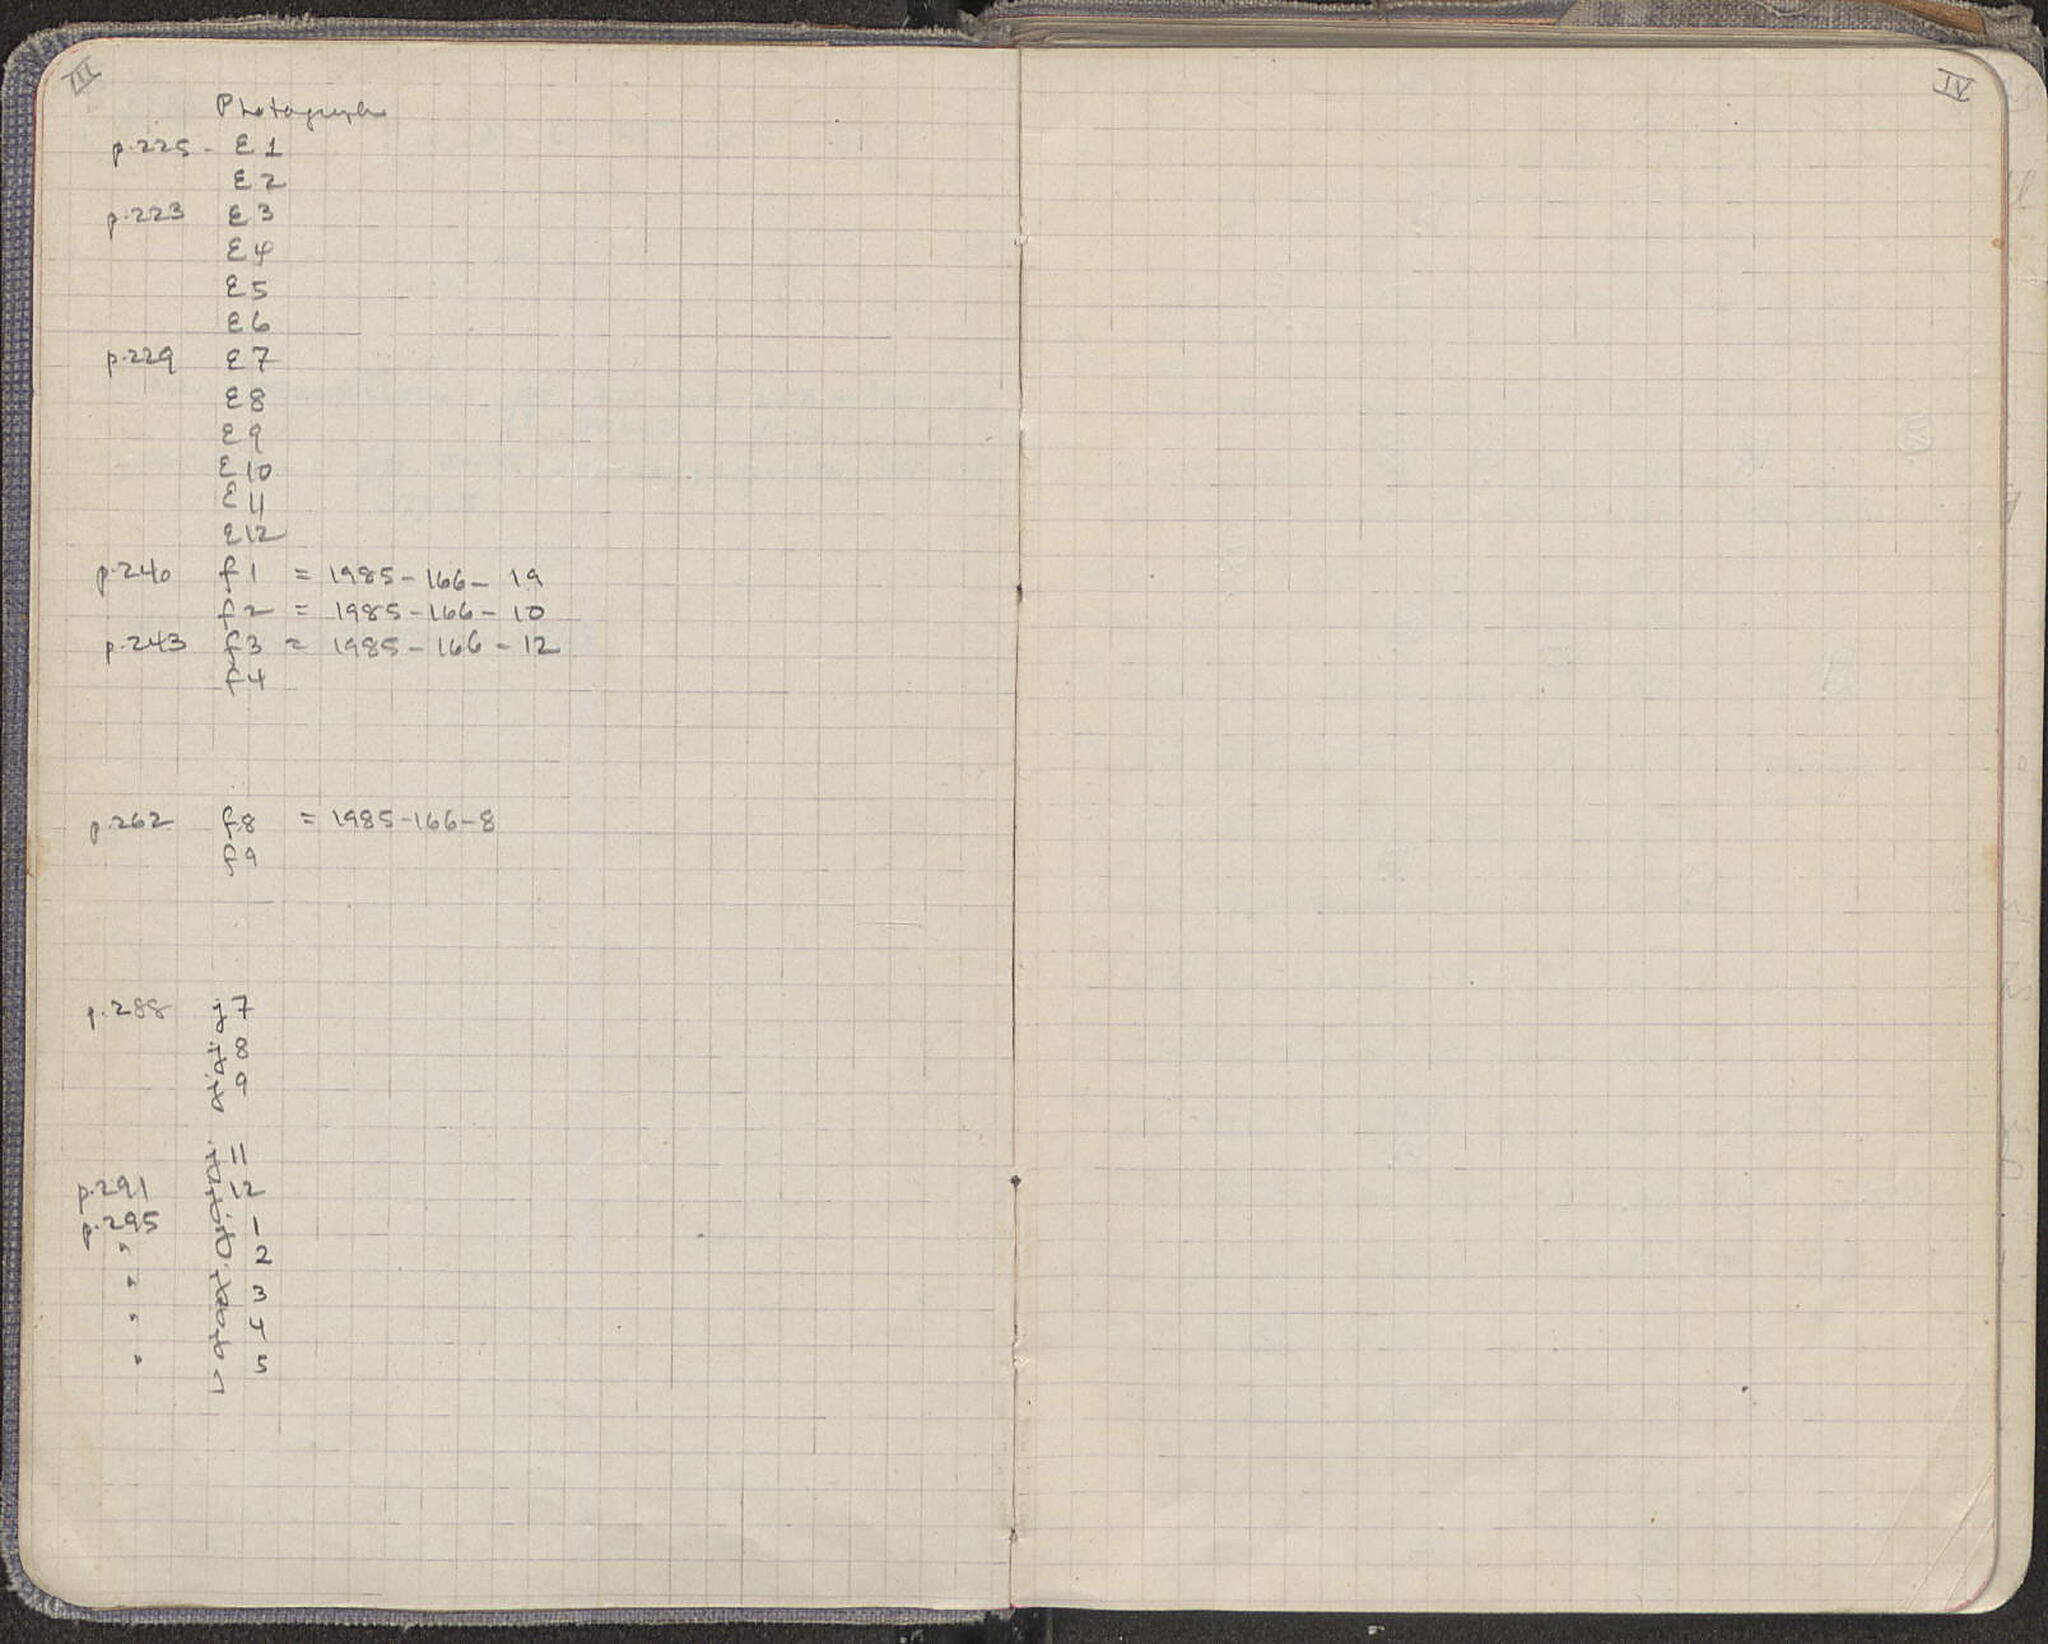 III
Photographs
p.225 - E1
E2
p.223 E3
E4
E5
E6
p.229 E7
E8
E9
E10
E11
E12
p.240 f1 = 1985-166-19
f2 = 1985-166-10
p.243 f3 = 1985-166-12
f4
p.262 f8 = 1985-166-8
f9
p.288 j7
j8
j9
j11
p.291 j12
p.295 1
" 2
" 3
" 4
" 5
IV